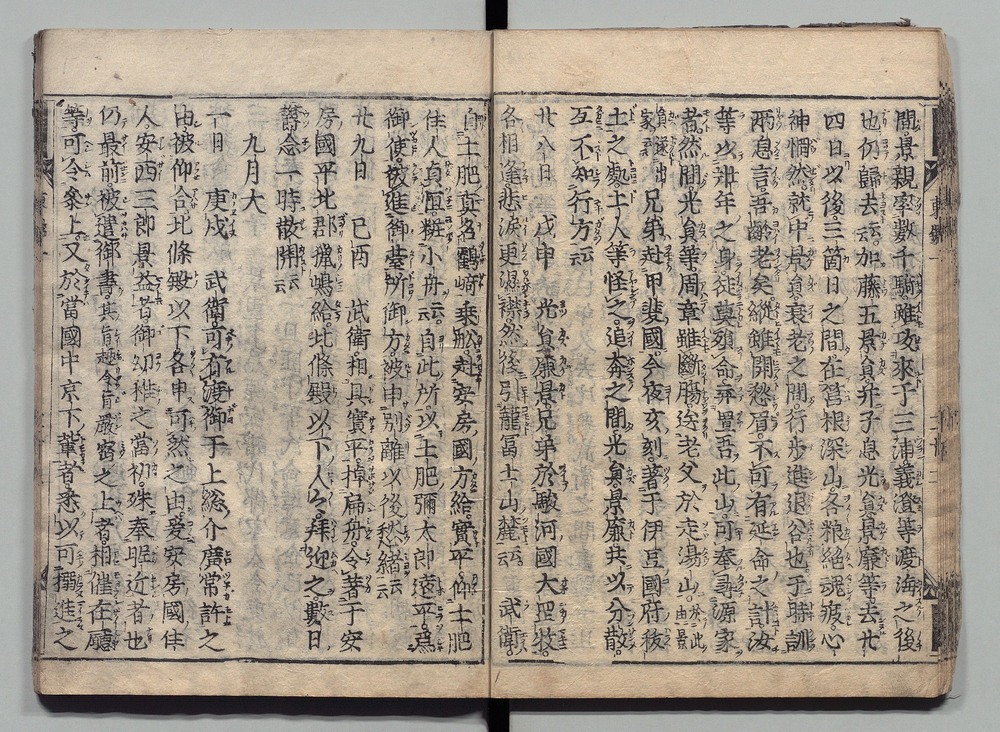 間景親率數千騎雖攻來于三浦義澄等渡海之後
也仍歸去云云加藤五景員并子息光員景廉等去廿
四日以後三箇日之間在筥根深山各粮絶魂疲心
神惘然就中景員衰老之間行歩進退谷也于時訓
兩息言吾齢老矣縱雖開愁眉不可有延命之計汝
等以壯年之身徒莫殞命弃置吾此山可奉尋源家
者然間光員等周章雖斷腸送老父於走湯山
兄弟赴甲斐國今夜亥刻著于伊豆國府秡
土之處土人等怪之追奔之間光員景廉共以分散
互不知行方云云
廿八日 戊申 光員廉景兄弟於駿河國大岡牧
各相逢悲涙更濕襟然後引籠冨士山麓云云 武衛
自土肥眞名鶴崎乗舩赴安房國方給實平仰土肥
住人貞恒粧小舟云云自此所以土肥彌太郎遠平爲
御使被進御臺所御方被申別離以後愁緒云云
廿九日 己酉 武衛相具實平棹扁舟令著于安
房國平北郡獵嶋給北條殿以下人々拜迎之數日
欝念一時散開云云
九月大
一日 庚戌 武衛可有渡御于上總介廣常許之
由被仰合北條殿以下各申可然之由爰安房國住
人安西三郎景益者御幼稚之當初殊奉昵近者也
仍最前被遣御書其旨趣令旨嚴密之上者相催在廳
等可令參上又於當國中京下輩者悉以可搦進之